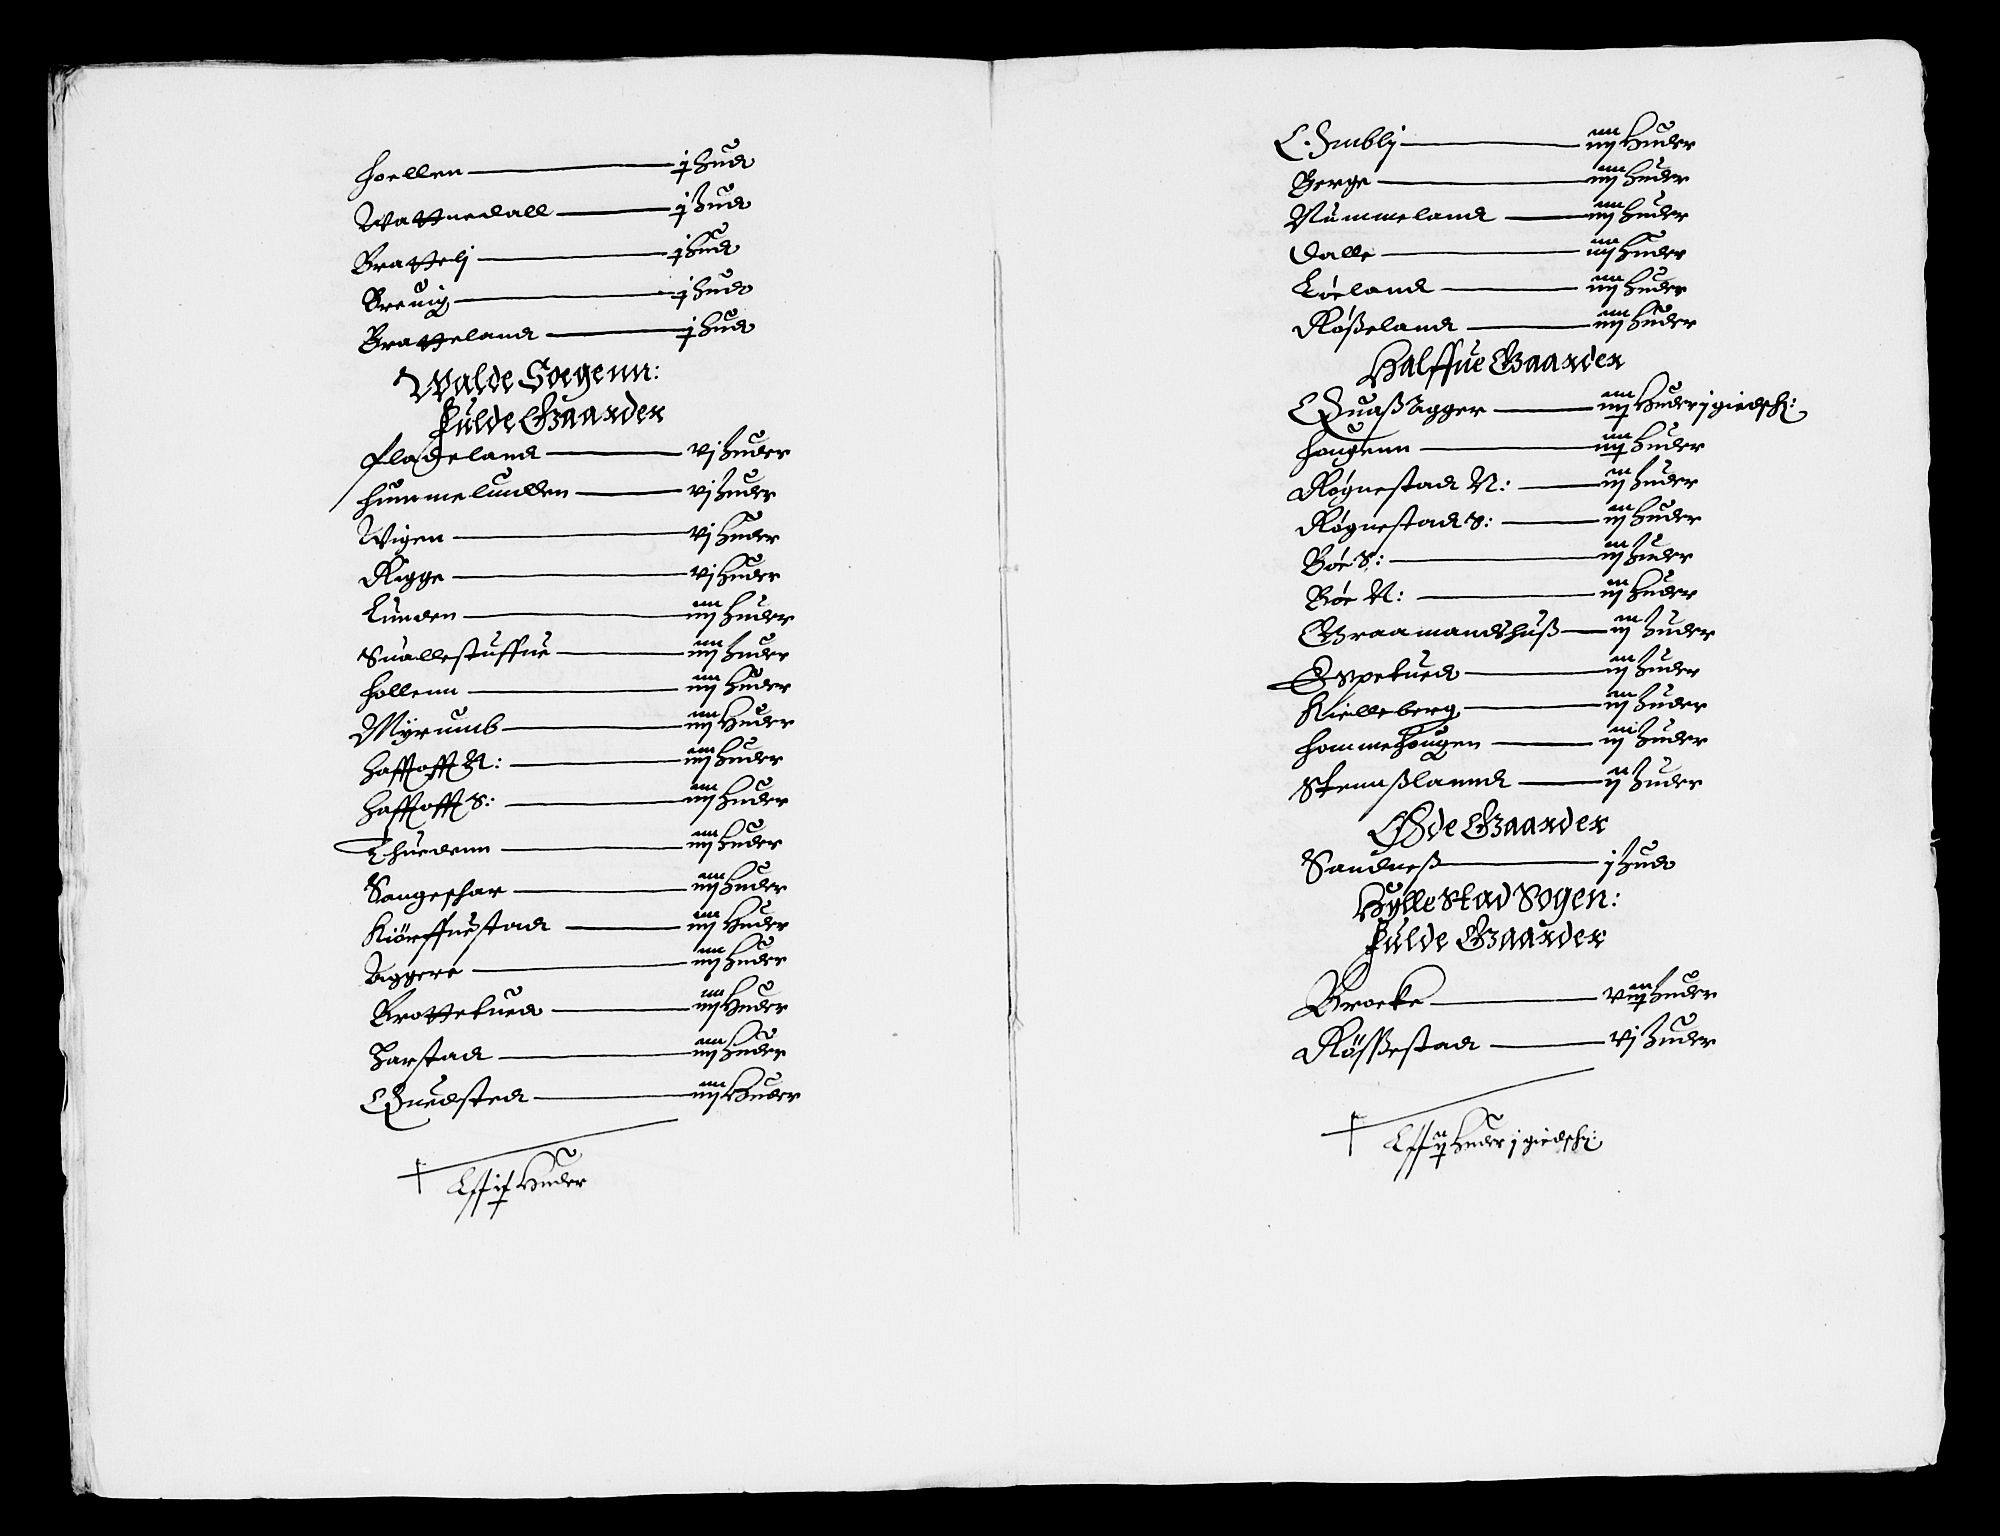 Hoellen — j Hud
Wattnedall — j Hud
Brattelj — j Hud
Breuig — j Hud
Bratteland — j Hud
Walde Soegenn:
Fulde Gaarder
Fladeland — vj Huder
Hummelunden — vj Huder
Wigen — vj Huder
Rigge — vj Huder
Lunden — iiij Huder
Suallestuffue — iiij Huder
Hollenn — iiij Huder
Myrumb — iiij Huder
Hafftofft N: — iiij Huder
Hafftofft S: — iiij Huder
Thuedenn — iiij Huder
Sangeshar — iiij Huder
Kiörffuestad — iiij Huder
Aggere — iiij Huder
Brottekued — iiij Huder
Harstad — iiij Huder
Quedsted — iiij Huder
Huder
Homblj — iiij Huder
Berge — iiij Huder
Nummeland — iiij Huder
Dalle — iiij Huder
Løeland — iiij Huder
Røßeland — iiij Huder
Halffue Gaarder
Quaßagger — Huder j giedsk:
Hougenn — Huder
Røgnestad N: — iij Huder
Røgnestad S: — iij Huder
Bøe S: — iij Huder
Bøe N: — iij Huder
Graamandshuß — iij Huder
Espetued — iij Huder
Kielleberg — iij Huder
Hommehougen — iij Huder
Stennßlannd — ij Huder
Øde Gaarder
Sandneß — j Hud
Hylle Stad Sogen:
Fulde Gaarder
Broeke — Huder
Røsßestad — vj Huder
Huder j giedsk: